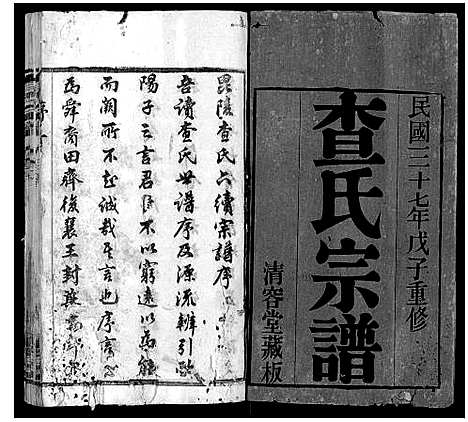 民國三十七年戊子重修
查氏宗譜
清容堂藏板
毘陵查氏六續宗譜序
吾讀查氏世譜序及源流辨引歐
陽子云言君子不以窮遠以為能
而闕所不知誠哉是言也序言
為舜裔田齊後襄王封